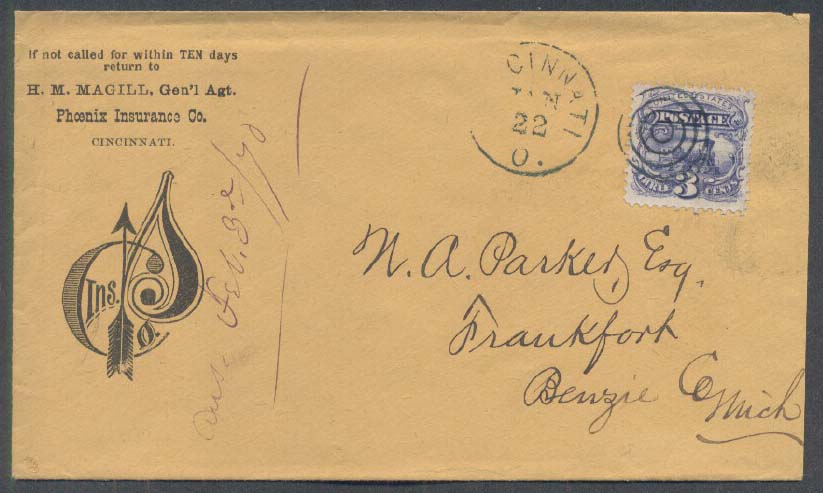 If not called for within TEN days
return to
H. M. MAGILL, Gen'l Agt.
Phœnix Insurance Co.
CINCINNATI.
Ins.
Co.
CINNATI
JAN
22
O.
UNITED STATES
POSTAGE
3
CENTS
Ans. Feb. 3d/70
N. A. Parker, Esq.
Frankfort
Benzie Co
Mich